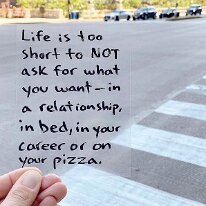 Life is too
short to NOT
ask for what
you want – in
a relationship,
in bed, in your
career or on
your pizza.